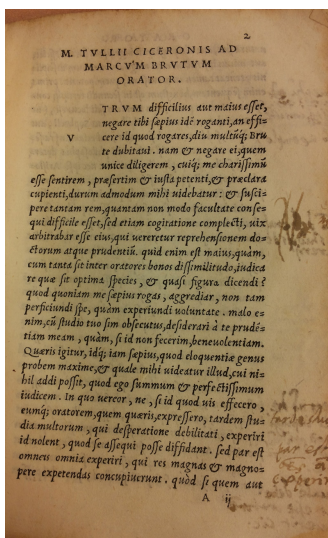 2
M. TVLLII CICERONIS AD
MARCVM BRVTVM
ORATOR.
TRVM difficilius aut maius esset,
negare tibi sæpius idē roganti, an effi-
V
cere id quod rogares, diu multūq; Bru
te dubitaui. nam & negare ei, quem
unice diligerem, cuiq; me charissimū
esse sentirem, præsertim & iusta petenti, & præclara
cupienti, durum admodum mihi uidebatur: & susci-
pere tantam rem, quantam non modo facultate conse-
qui difficile esset, sed etiam cogitatione complecti, uix
arbitrabar esse eius, qui uereretur reprehensionem do-
ctorum atque prudentiū. quid enim est maius, quàm,
cum tanta sit inter oratores bonos dissimilitudo, iudica
re quæ sit optima species, & quasi figura dicendi?
quod quoniam me sæpius rogas, aggrediar, non tam
perficiundi spe, quàm experiundi uoluntate. malo e-
nim, cū studio tuo sim obsecutus, desiderari à te prudē-
tiam meam, quàm, si id non fecerim, beneuolentiam.
Quæris igitur, idq; iam sæpius, quod eloquentiæ genus
probem maxime, & quale mihi uideatur illud, cui ni-
hil addi possit, quod ego summum & perfectissimum
iudicem. In quo uereor, ne, si id quod uis effecero,
eumq; oratorem, quem quæris, expressero, tardem stu-
dia multorum, qui desperatione debilitati, experiri
id nolent, quod se assequi posse diffidant. sed par est
omneis omnia experiri, qui res magnas & magno-
pere expetendas concupiuerunt. quòd si quem aut
A ij